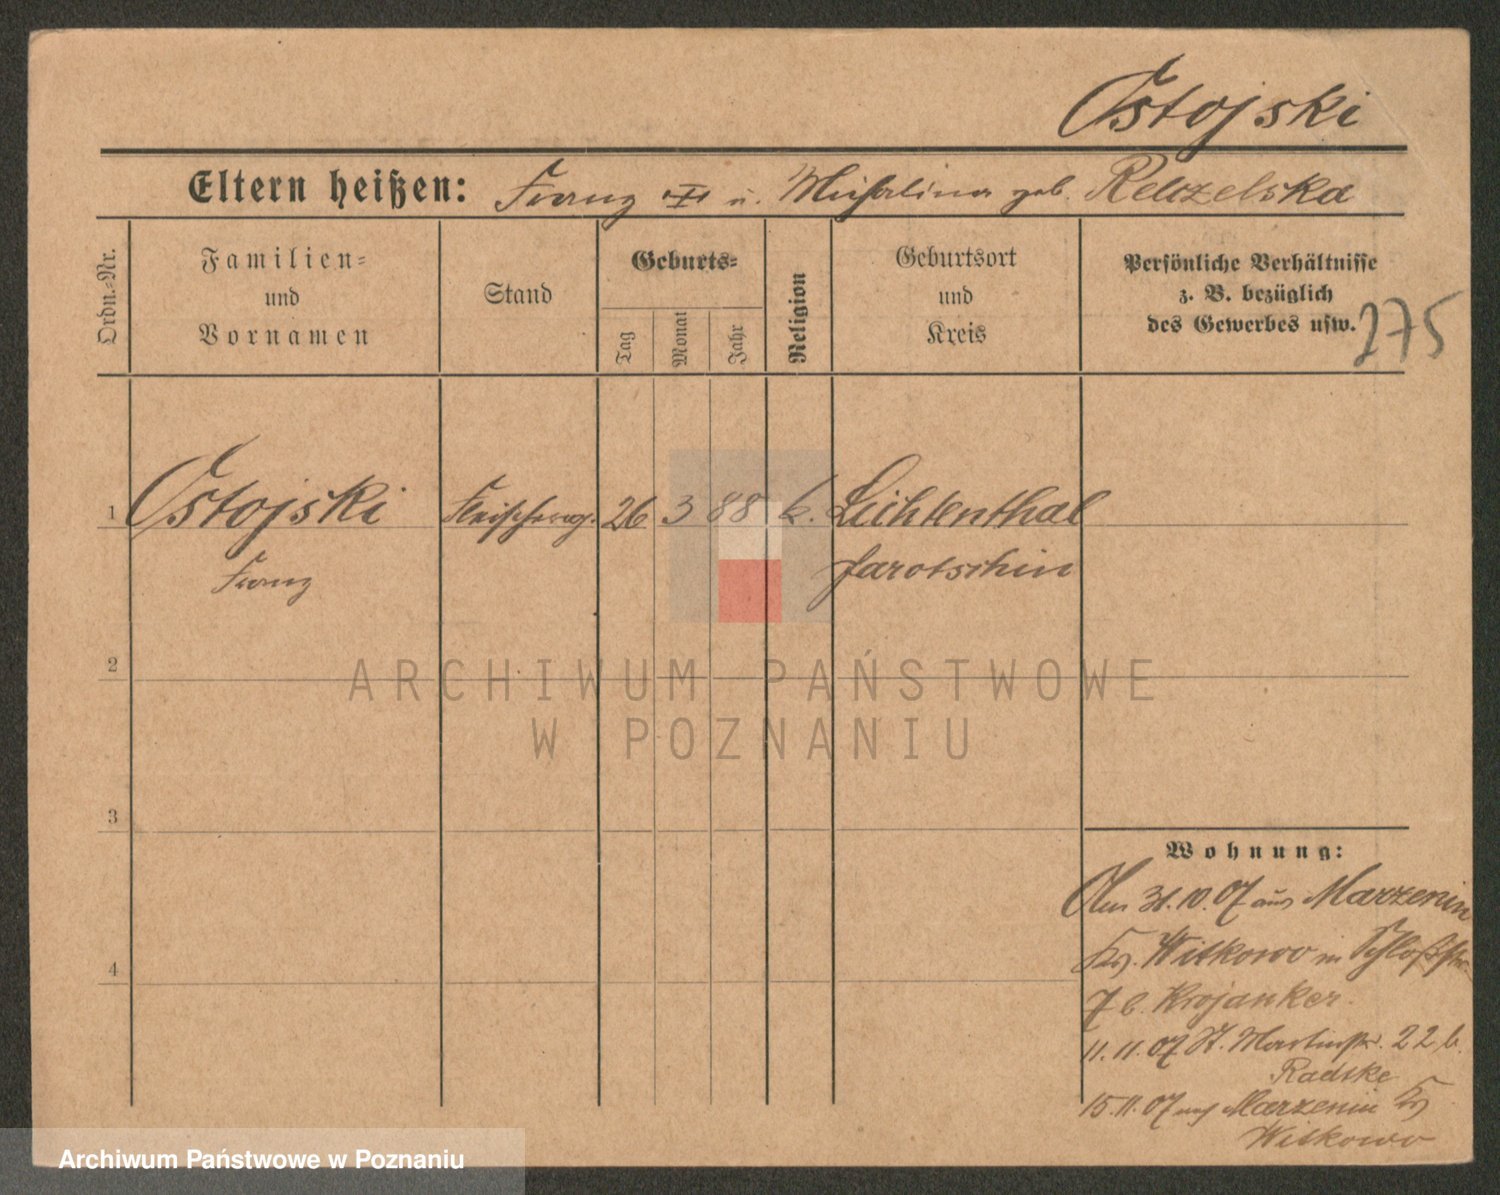 Ostojski
Eltern heißen: Franz u. Michalina geb.
Ordn.-Nr.
Familien-
und
Vornamen
Stand
Geburts-
Tag
Monat
Jahr
Religion
Geburtsort
und
Kreis
Persönliche Verhältnisse
z. B. bezüglich
des Gewerbes usw.
275
1 Ostojski 26 3 88 k. Lichtenthal
Franz Jarotschin
2
ARCHIWUM PAŃSTWOWE
W POZNANIU
3
Wohnung:
Am 31.10.07 aus Marzenin
4
Kr. Witkowo in Schloßstr
7 b. Krojanker.
11.11.07 St. Martinstr. 22 b.
Radtke
15.11.07 nach Marzenin Kr
Witkowo
Archiwum Państwowe w Poznaniu